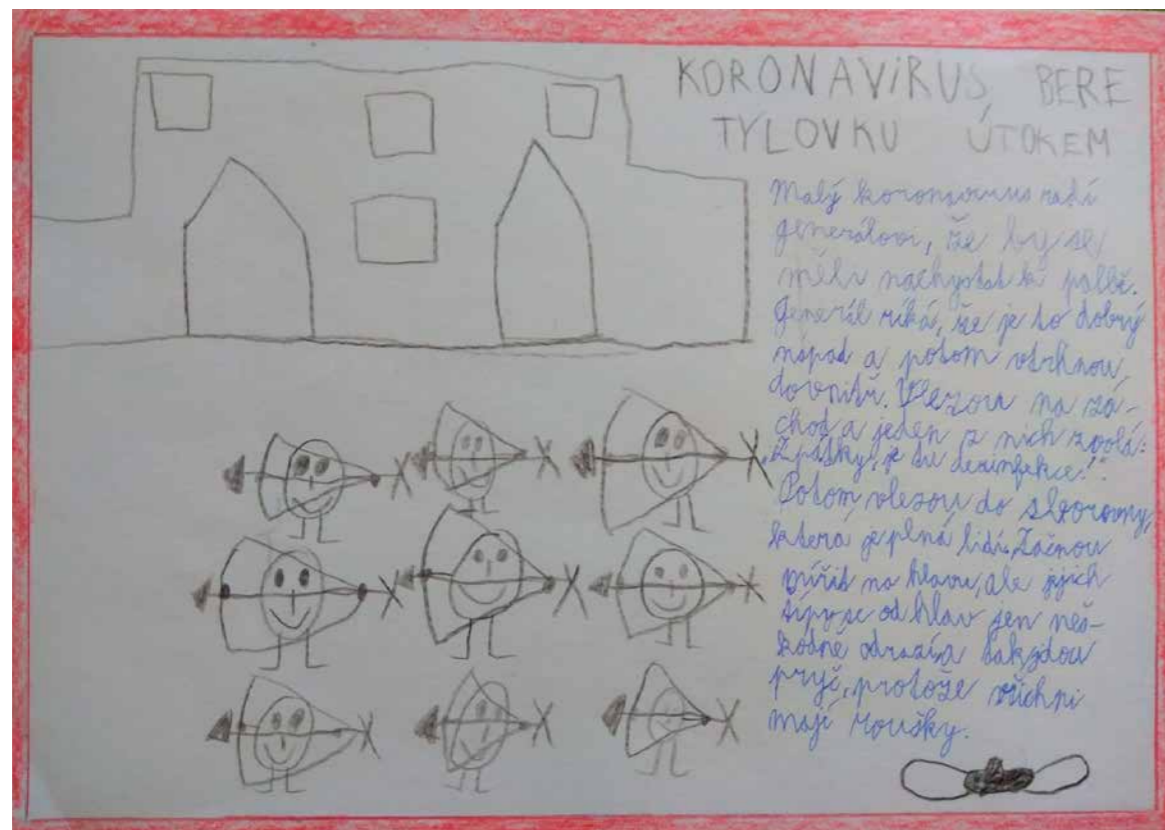 KORONAVIRUS, BERE
TYLOVKU ÚTOKEM
Malý koronavirus radí
generálovi, že by se
měli nachystat k palbě.
Generál riká, že je to dobrý
nápad a potom vtrhnou
dovnitř. Vlezou na zá-
chod a jeden z nich zvolá:
„Zpátky, je tu dezinfekce!"
Potom vlezou do sborovny,
která je plná lidí. Začnou
mířit na hlavu, ale jejich
šípy se od hlav jen neš-
kodně odrazí a tak jdou
pryč, protože všichni
mají roušky.